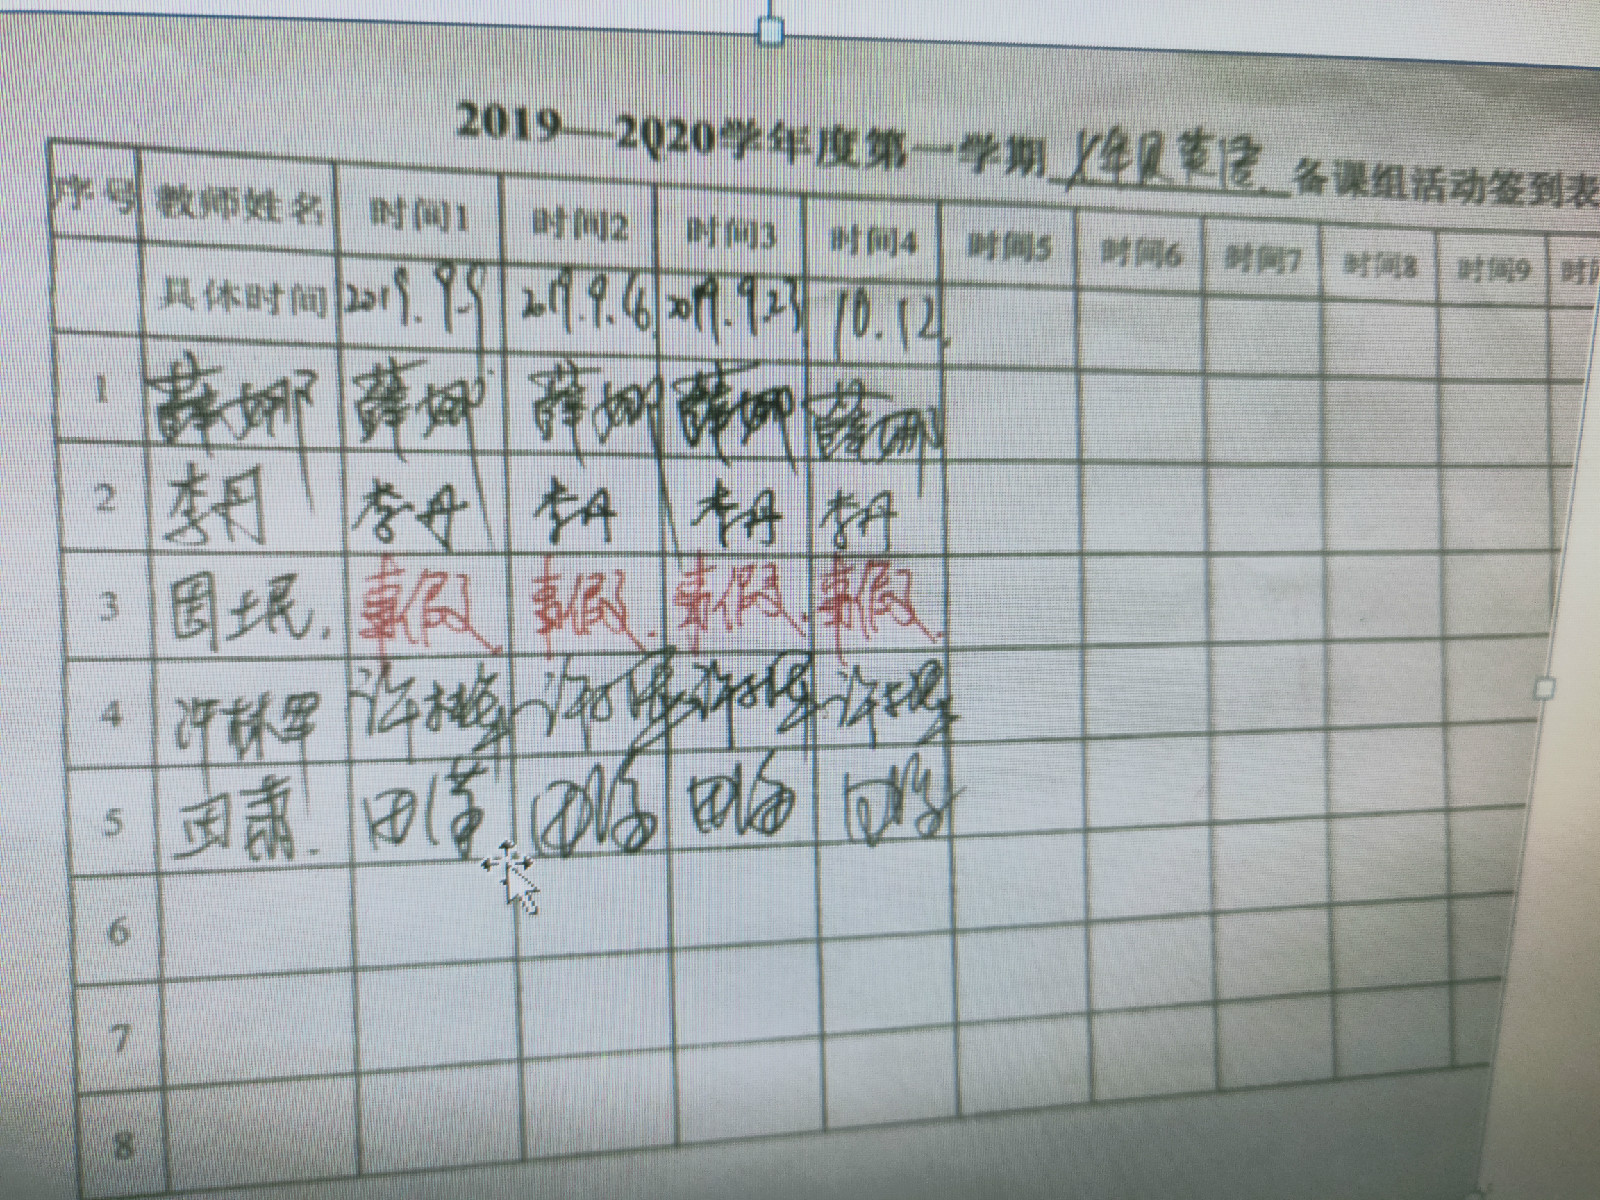 2019—2020学年度第一学期 年级英语 备课组活动签到表
序号 教师姓名 时间1 时间2 时间3 时间4 时间5 时间6 时间7 时间8 时间9
具体时间 2019.9.5 2019.9.16 2019.9.23 10.12
1 薛娜 薛娜 薛娜 薛娜 薛娜
2 李丹 李丹 李丹 李丹 李丹
3 事假 事假 事假 事假
4 许林 许 许 许 许
5 田肃 田 田 田 田
6
7
8